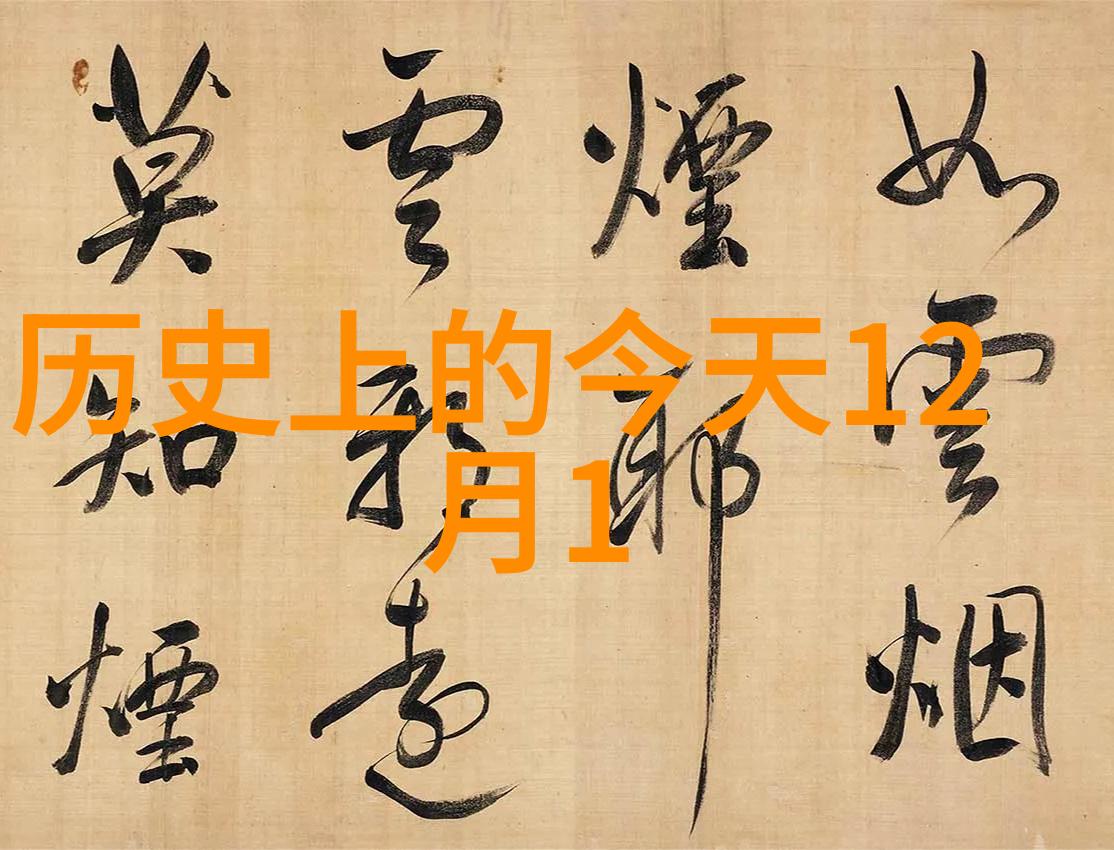 如雲烟
煙耶
云邪遠
莫知煙
历史上的今天12
月1